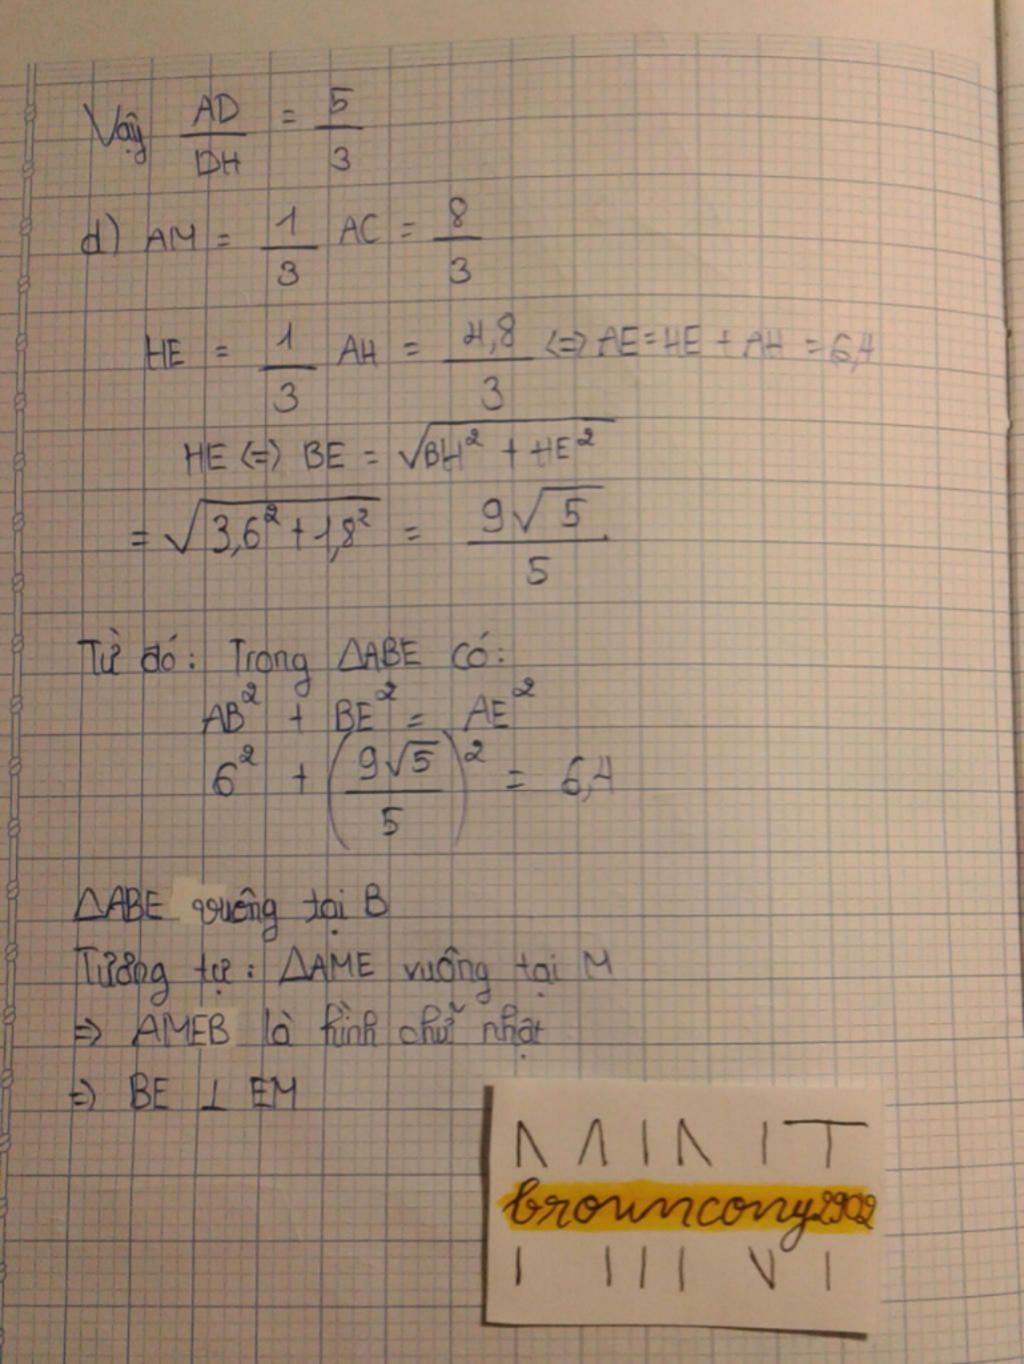 Vậy AD/DH = 5/3
d) AM = 1/3 AC = 8/3
HE = 1/3 AH = 4,8/3 <=> AE = HE + AH = 6,4
HE <=> BE = √(BH² + HE²)
= √(3,6² + 1,8²) = 9√5/5
Từ đó: Trong ΔABE có:
AB² + BE² = AE²
6² + (9√5/5)² = 6,4
ΔABE vuông tại B
Tương tự: ΔAME vuông tại M
=> AMEB là hình chữ nhật
=> BE ⊥ EM
browncony2902